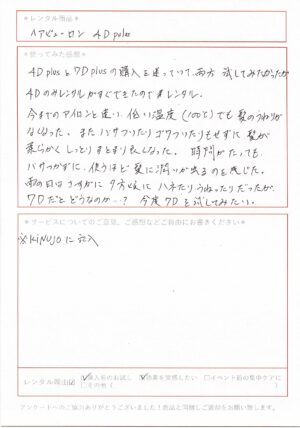 *レンタル商品*
ヘアビューロン 4D plus
*使ってみた感想*
4D plusと7D plusの購入を迷っていて、両方試してみたかったが
4Dのみレンタルがすぐできたのでレンタル。
今までのアイロンと違い、低い温度(100℃)でも髪のうねりが
なくなった。またパサついたりゴワついたりもせずに髪が
柔らかくしっとりまとまり良くなった。時間がたっても
パサつかずに、使うほど髪に潤いが出るのを感じた。
雨の日はさすがに夕方頃にハネたりうねったりだったが、
7Dだとどうなのか…？今度7Dを試してみたい。
*サービスについてのご意見、ご感想などご自由にお書きください*
※KINUJOに記入
レンタル理由 ☑購入前のお試し ☑効果を実感したい □イベント前の集中ケアに
□その他（ ）
アンケートへのご協力ありがとうございました！商品と同梱しご返却をお願い致します。